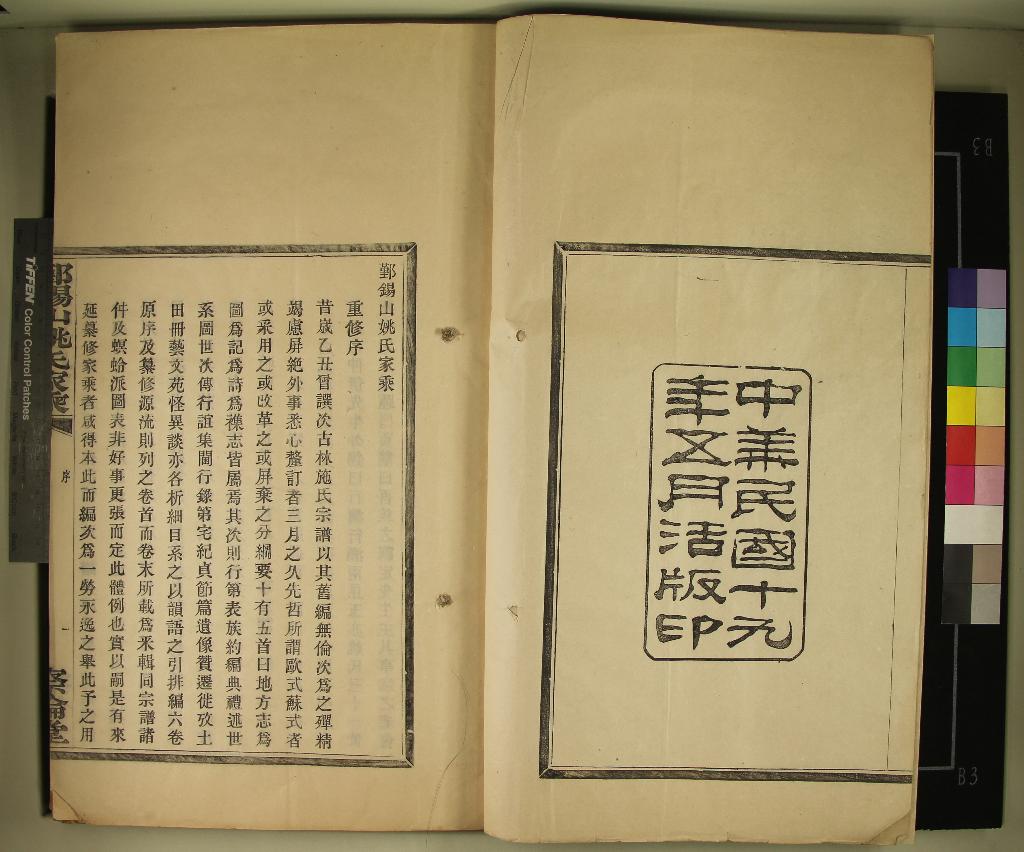 中華民國十九
年五月活版印
鄞錫山姚氏家乘
重修序
昔歲乙丑曾譔次古林施氏宗譜以其舊編無倫次爲之殫精
竭慮屏絕外事悉心釐訂者三月之久先哲所謂歐式蘇式者
或采用之或改革之或屏棄之分綱要十有五首曰地方志爲
圖爲記爲詩爲襍志皆屬焉其次則行第表族約編典禮述世
系圖世次傳行誼集聞行錄第宅紀貞節篇遺像贊遷徙攷土
田冊藝文苑怪異談亦各析細目系之以韻語之引排編六卷
原序及纂修源流則列之卷首而卷末所載爲釆輯同宗譜諸
件及螟蛉派圖表非好事更張而定此體例也實以嗣是有來
延纂修家乘者咸得本此而編次爲一勞永逸之舉此予之用
鄞錫山姚氏家乘
序
一
TIFFEN Color Control Patches
B3
B3